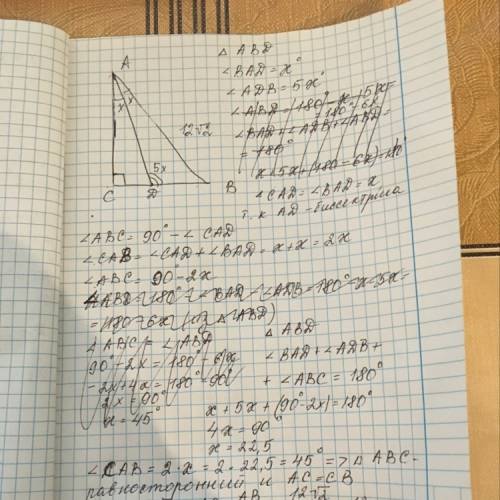 A
x x
12√2
5x
C D B
△ ABD
∠BAD = x°
∠ADB = 5x°
∠ABD = 180° - x - 5x =
= 180° - 6x
∠BAD + ∠ADB + ∠ABD =
= 180°
x + 5x + (180 - 6x) = 180°
∠CAD = ∠BAD = x
т. к AD - биссектриса
∠ABC = 90° - ∠CAD
∠CAB = ∠CAD + ∠BAD = x + x = 2x
∠ABC = 90 - 2x
∠ABD = 180° - ∠BAD - ∠ADB = 180° - x - 5x =
= 180 - 6x (из △ ABD)
∠ABC = ∠ABD
90° - 2x = 180° - 6x
- 2x + 4x = 180° - 90°
2x = 90°
x = 45°
△ ABD
∠BAD + ∠ADB +
+ ∠ABC = 180°
x + 5x + (90° - 2x) = 180°
4x = 90°
x = 22,5
∠CAB = 2 · x = 2 · 22,5 = 45° => △ ABC -
равносторонний и AC = CB
AB 12√2